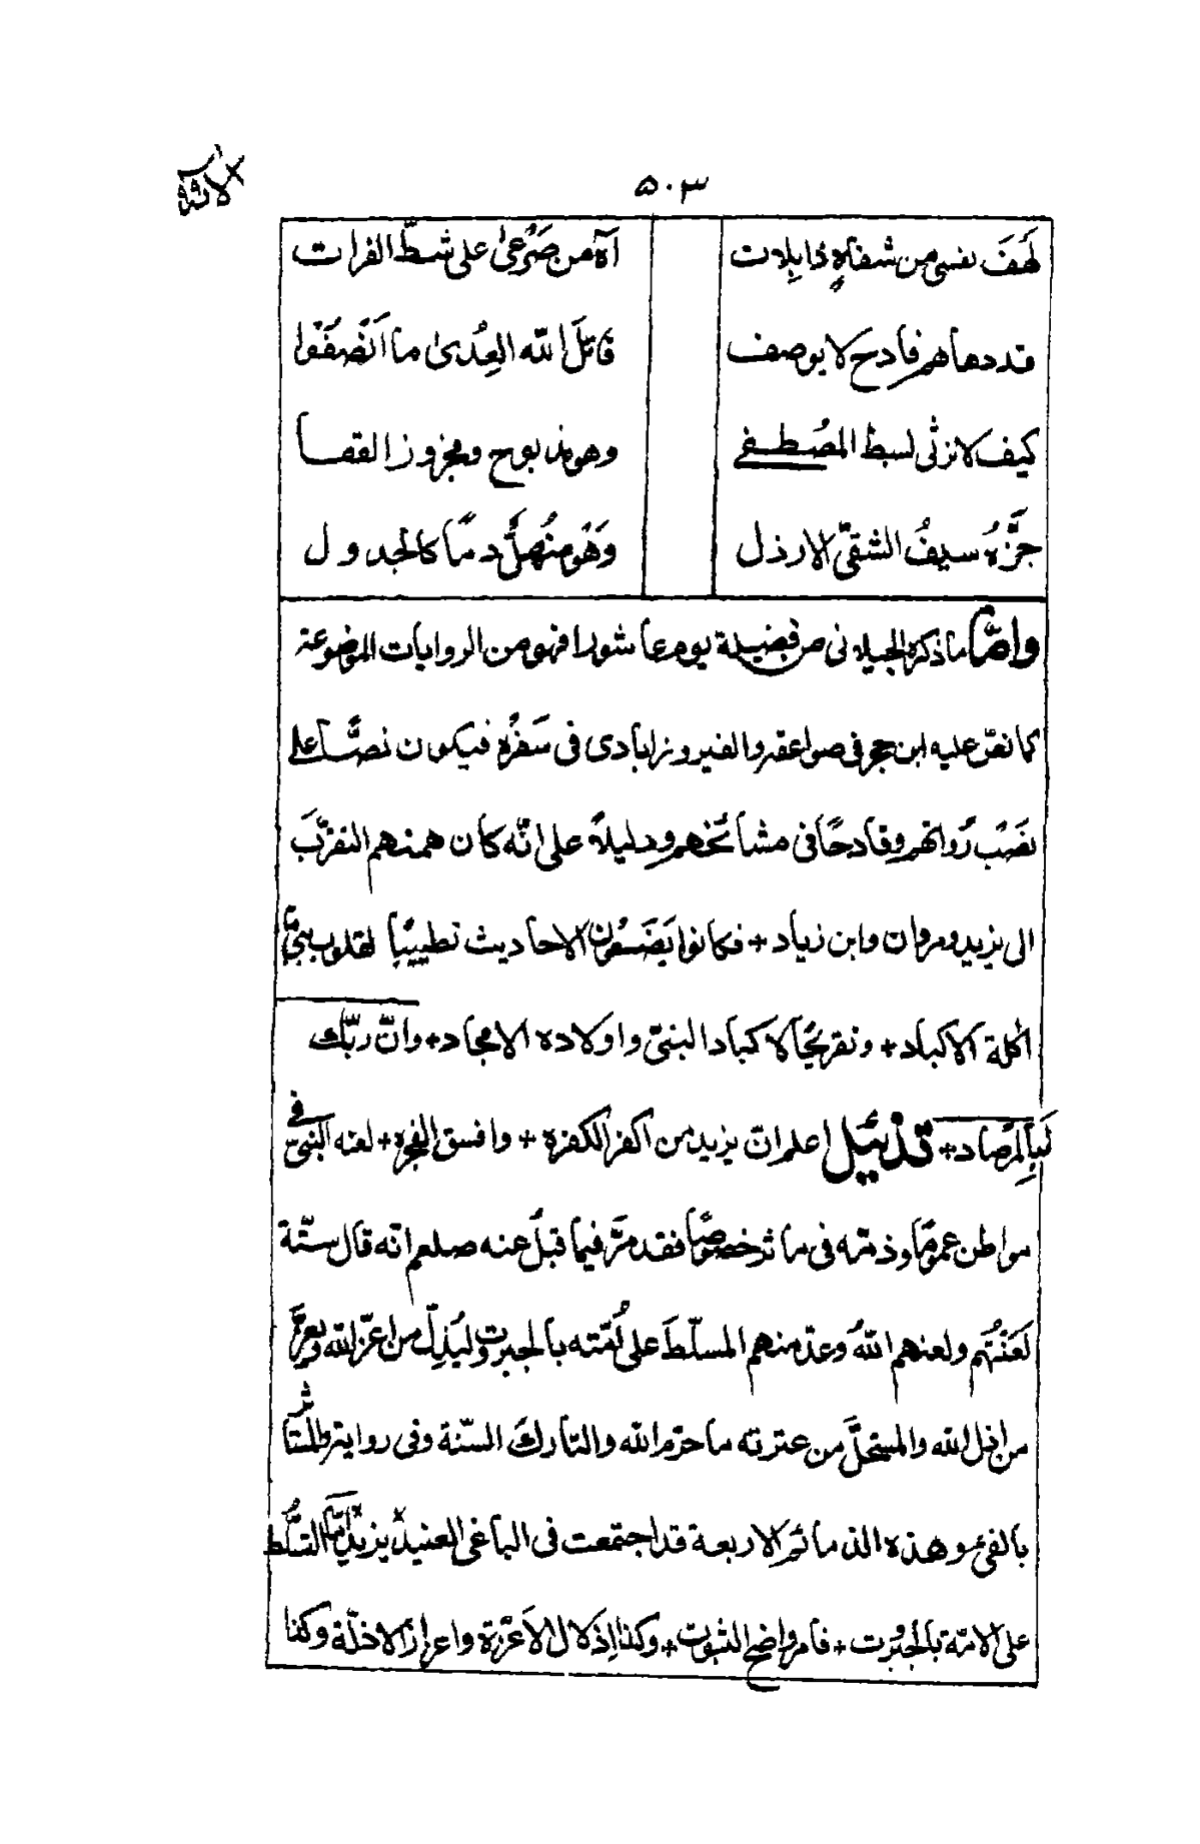 ٥٠٣
لَهفَ نفسی من شفاهٍ ذابلات آهٓ من صَرْعیٰ علی شطّ الفرات
قد دهاهم فادح لا یوصف قاتَلَ اللّٰه العِدیٰ ما اَنْصَفَوا
کیف لا نرثی لسبط المُصْطفی وهو مذبوح ومجزوز القفا
جَزَّهُ سیفُ الشقیّ الارذل وَهْو مُنْهلٌّ دمًا کالجدول
وامّا ما ذکره الجیلانی من فضیلة یوم عاشورا فهو من الروایات الموضوعة
کما نصّ علیه ابن حجر فی صواعقه والفیروزابادی فی سَفْره فیکون نصًّا علی
نصْب رُواتهم وقادحًا فی مشائخهم ودلیلاً علی انّه کان همّهم التقرّبَ
الی یزید ومروان وابن زیاد + فکانوا یَضَعُون الاحادیث تطییبًا لقلوب بنی
اٰکلة الاکباد + وتقریحًا لاکباد النبیّ واولاده الامجاد + وانّ ربّك
لَبِالمرْصاد + تذئیل اعلم انّ یزید من اکفر الکفرة + وافسق الفجره + لعنه النبیّ فی
مواطن عمومًا وذمّه فی ماثر خصوصًا فقد مرَّ فیما قبلُ عنه صلعم انّه قال ستّة
لَعَنْتُهم ولعنهم اللّٰهُ وعدّ منهم المسلّطَ علی اُمّته بالجبروت لیُذِلّ من اعزّ اللّٰه ویعزّ
من اذل اللّٰه والمستحلَّ من عترته ما حرّم اللّٰه والتارك السنّة وفی روایة والمستأثر
بالفئ وهذه الذمائم الاربعة قد اجتمعت فی الباغی العنید یزید امّا التسلُّط
علی الامّة بالجبروت + فامر واضح الثبوت + وکذا اِذلال الاَعزّة واعزاز الاذلّة وکذا